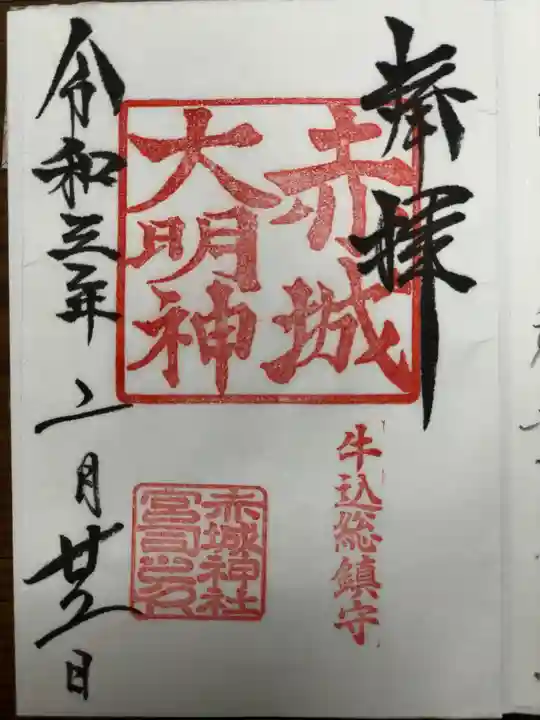 奉拝
赤城
大明神
牛込総鎮守
赤城神社
宮司之印
令和三年二月廿二日